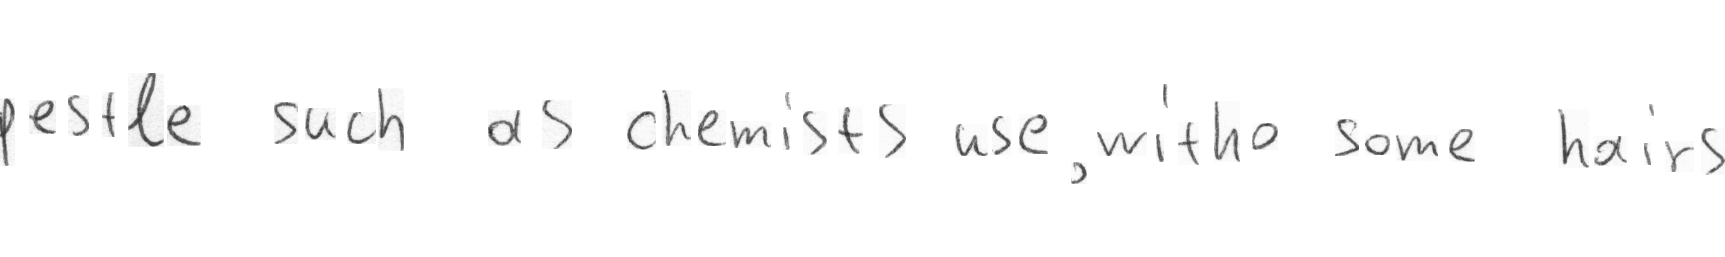 pestle such as chemists use, witho some hairs